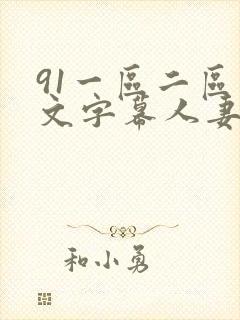 91一區二區
文字幕人妻
和小勇